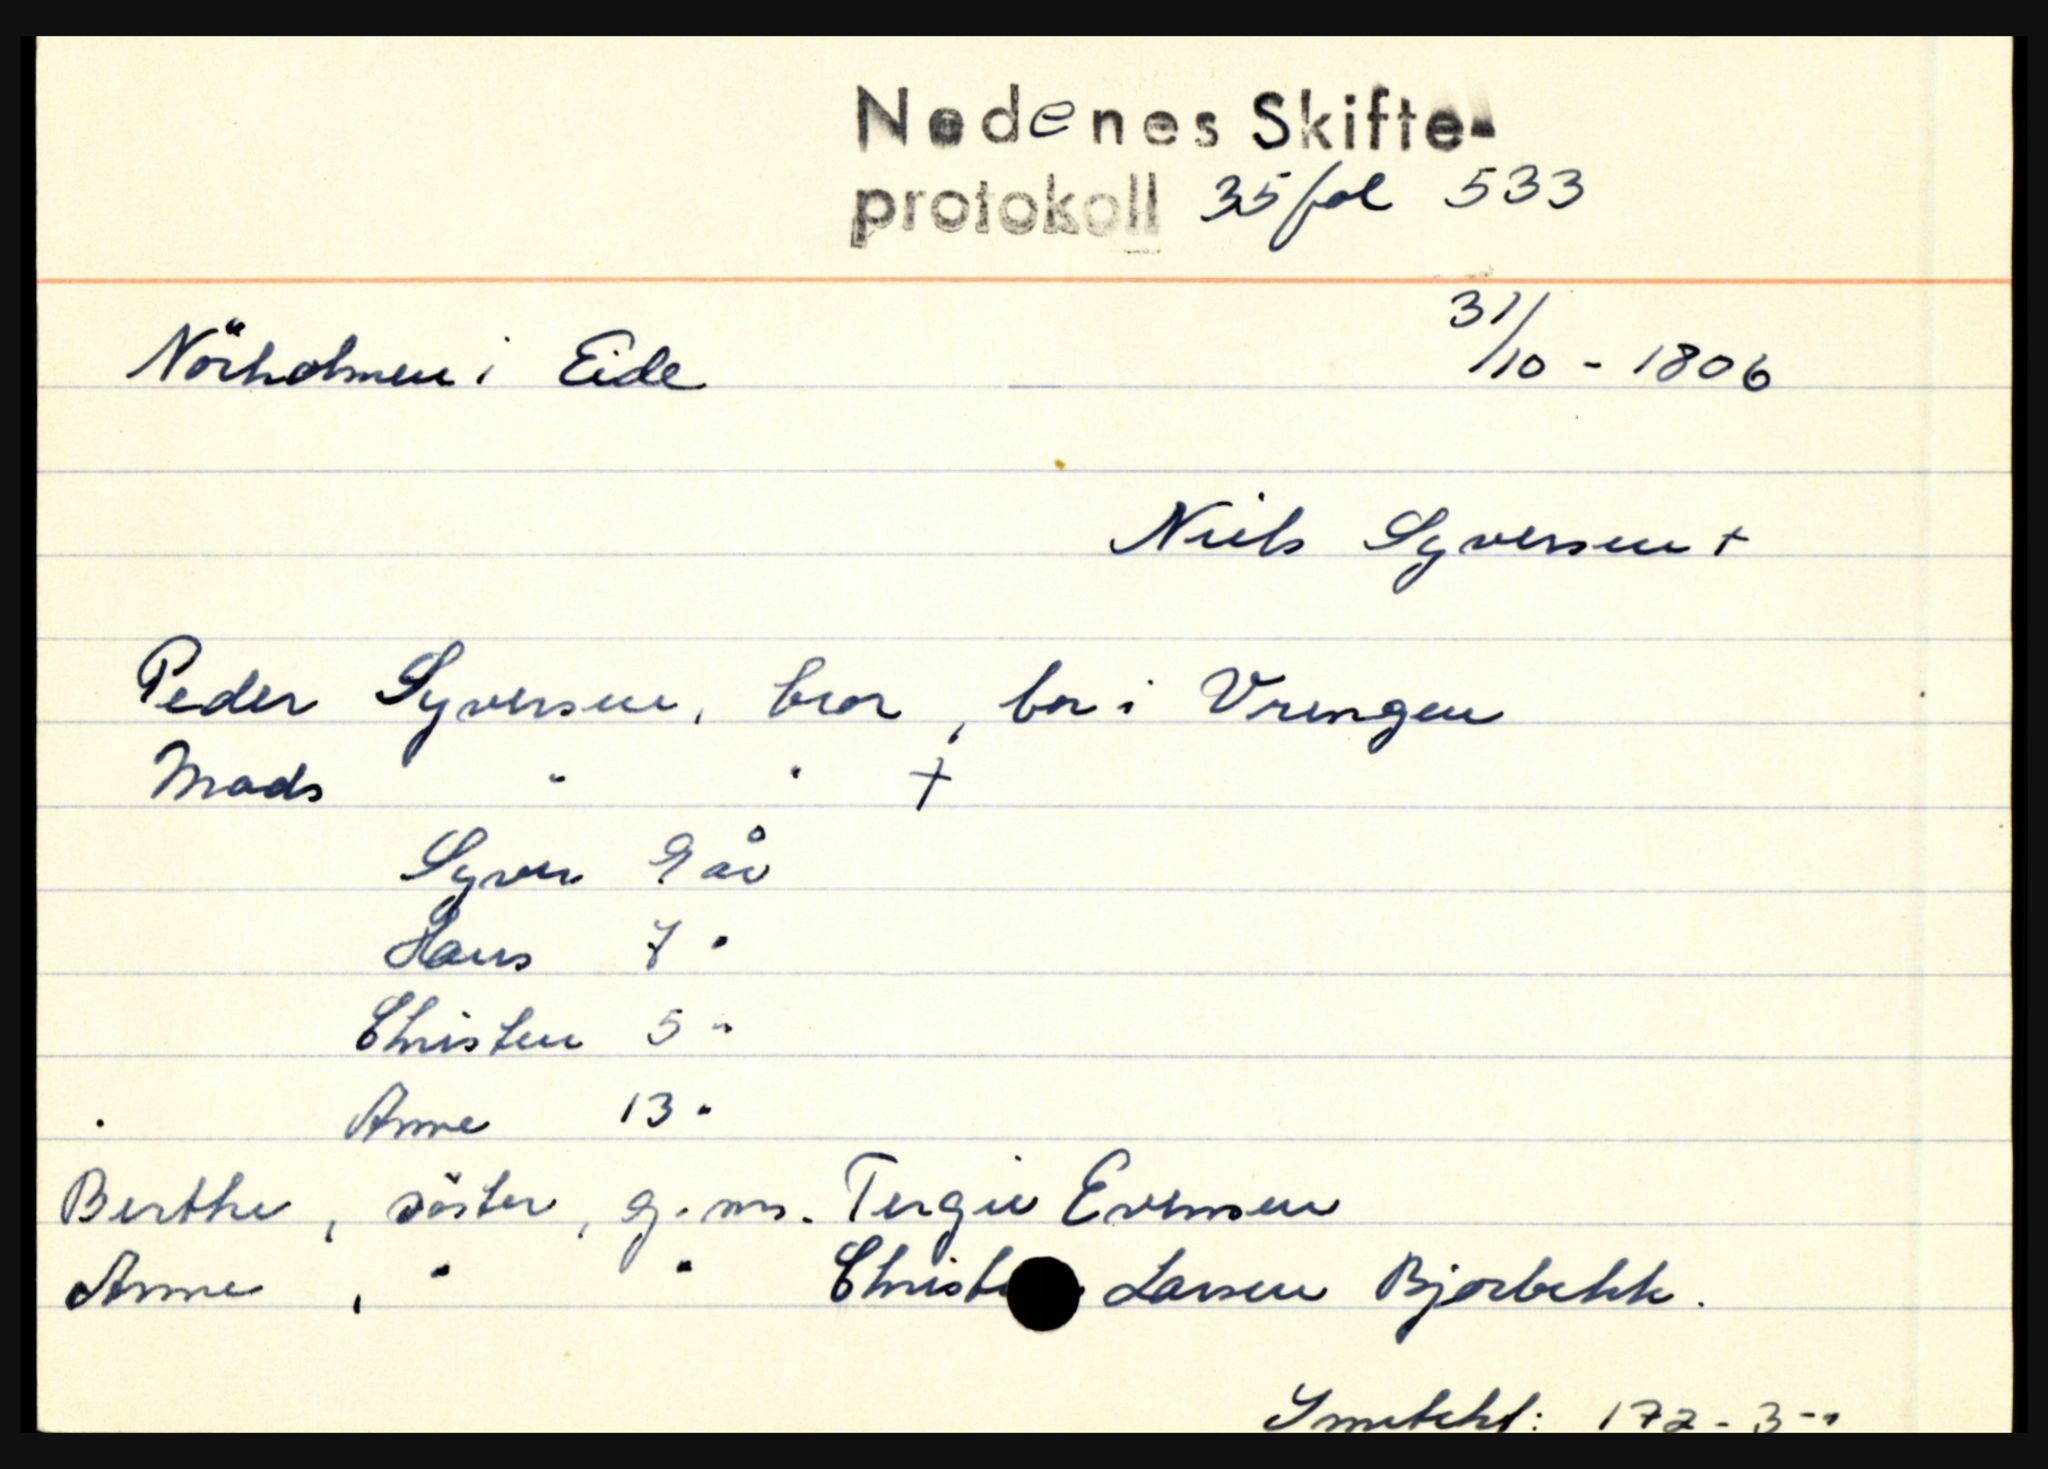 Nedenes Skifte-
protokoll 35 fol 533
Nörholmen i Eide 31/10 - 1806
Niels Syversen +
Peder Syversen, bror, bor i Vrengen
Mads " " +
Syver 9 år
Hans 7 "
Christen 5 "
Anne 13 "
Berthe, söster, g. m. Tergie Evensen
Anne, " " Christen Larsen Bjorbekk.
172 - 3 -"